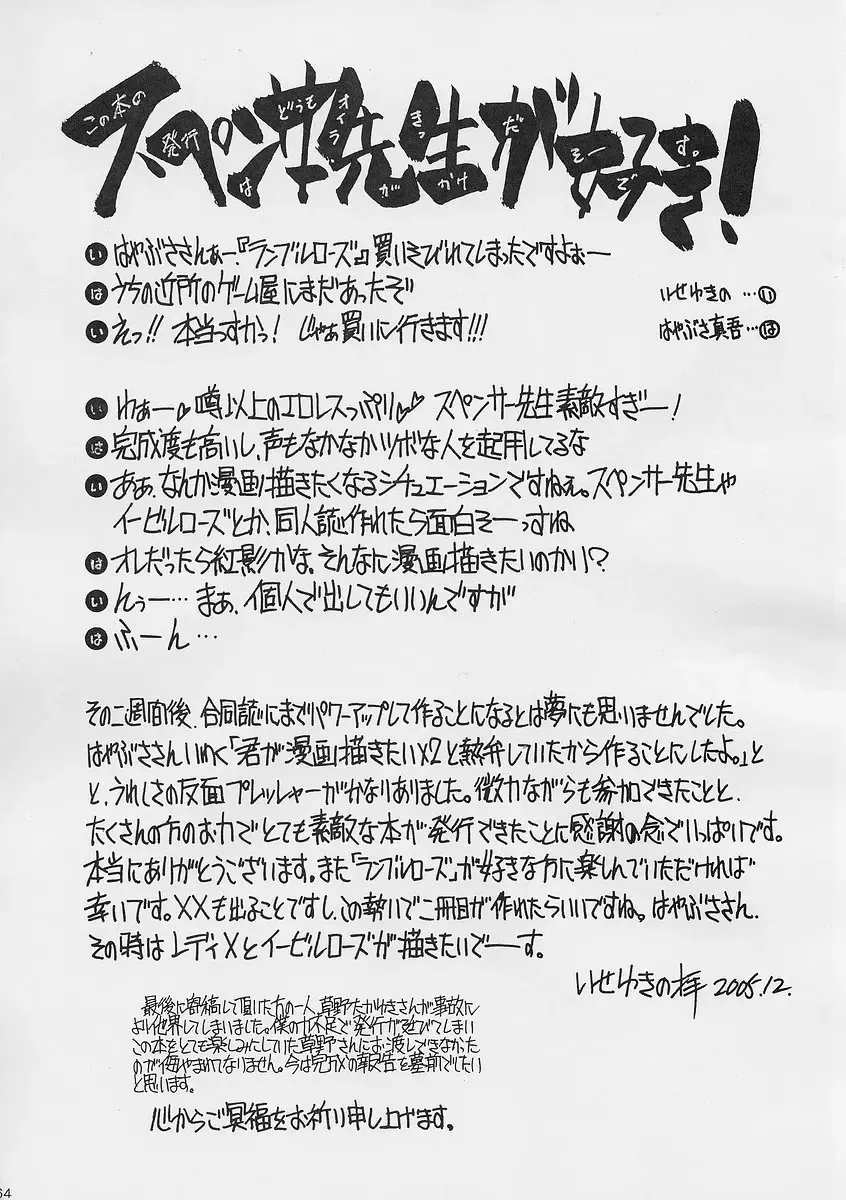 スペンサー先生が好き!
この本の発行は
どうもオイラが
きっかけ
だそーです。
い はやぶささんぁー、『ランブルローズ』買いそびれてしまったですよぉー
は うちの近所のゲーム屋にまだあったぞ
いせゆきの …い
い えっ!! 本当っすかっ! じゃあ買いに行きます!!!
はやぶさ真吾…は
い わぁー♥噂以上のエロレスっぷり♥♥ スペンサー先生素敵すぎー!
は 完成度も高いし、声もなかなかツボな人を起用してるな
い あぁ、なんか漫画描きたくなるシチュエーションですねぇ。スペンサー先生や
イービルローズとか、同人誌作れたら面白そーっすね
は オレだったら紅影かな。そんなに漫画描きたいのかい?
い んぅー… まぁ、個人で出してもいいんですが
は ふーん…
その二週間後、合同誌にまでパワーアップして作ることになるとは夢にも思いませんでした。
はやぶささんいわく「君が漫画描きたいx2と熱弁していたから作ることにしたよ。」と
と、うれしさの反面プレッシャーがかなりありました。微力ながらも参加できたことと、
たくさんの方のお力でとても素敵な本が発行できたことに感謝の念でいっぱいです。
本当にありがとうございます。また「ランブルローズ」が好きな方に楽しんでいただければ
幸いです。XXも出ることですし、この勢いで二冊目が作れたらいいですね。はやぶささん、
その時はレディXとイービルローズが描きたいでーす。
いせゆきの拝 2005.12.
最後に寄稿して頂いた方の一人、草野たかゆきさんが事故に
より他界してしまいました。僕の力不足で発行が延びてしまい
この本をとても楽しみにしていた草野さんにお渡しできなかった
のが悔やまれてなりません。今は完成の報告を墓前でしたい
と思います。
心からご冥福をお祈り申し上げます。
64